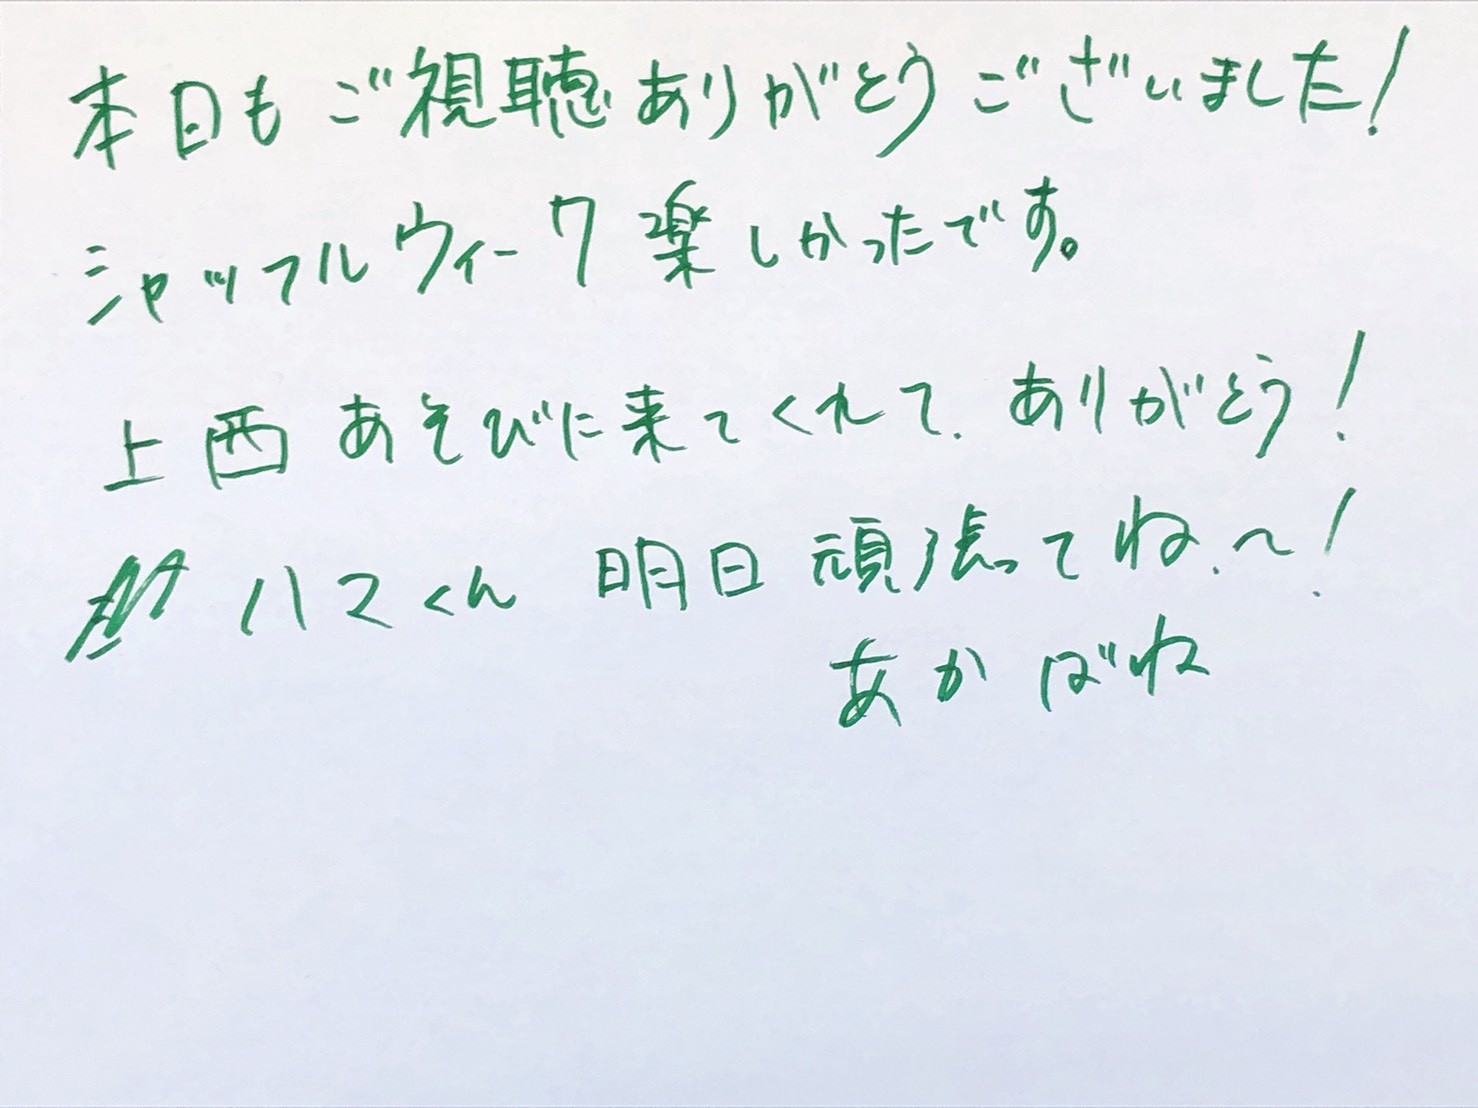 本日もご視聴ありがとうございました!
シャッフルウィーク楽しかったです。
上西あそびに来てくれてありがとう!
ハマくん 明日頑張ってね~!
あかばね